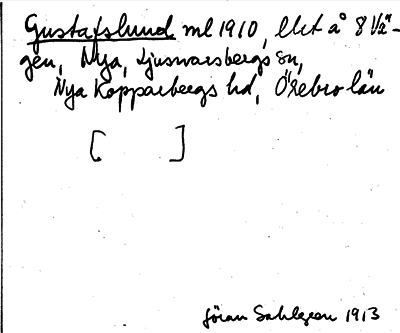 Gustafslund ml 1910, lht å 8 1/2"-
gen, Nya, Ljusnarsbergs sn,
Nya Kopparbergs hd, Örebro län
[ ]
Jöran Sahlgren 1913